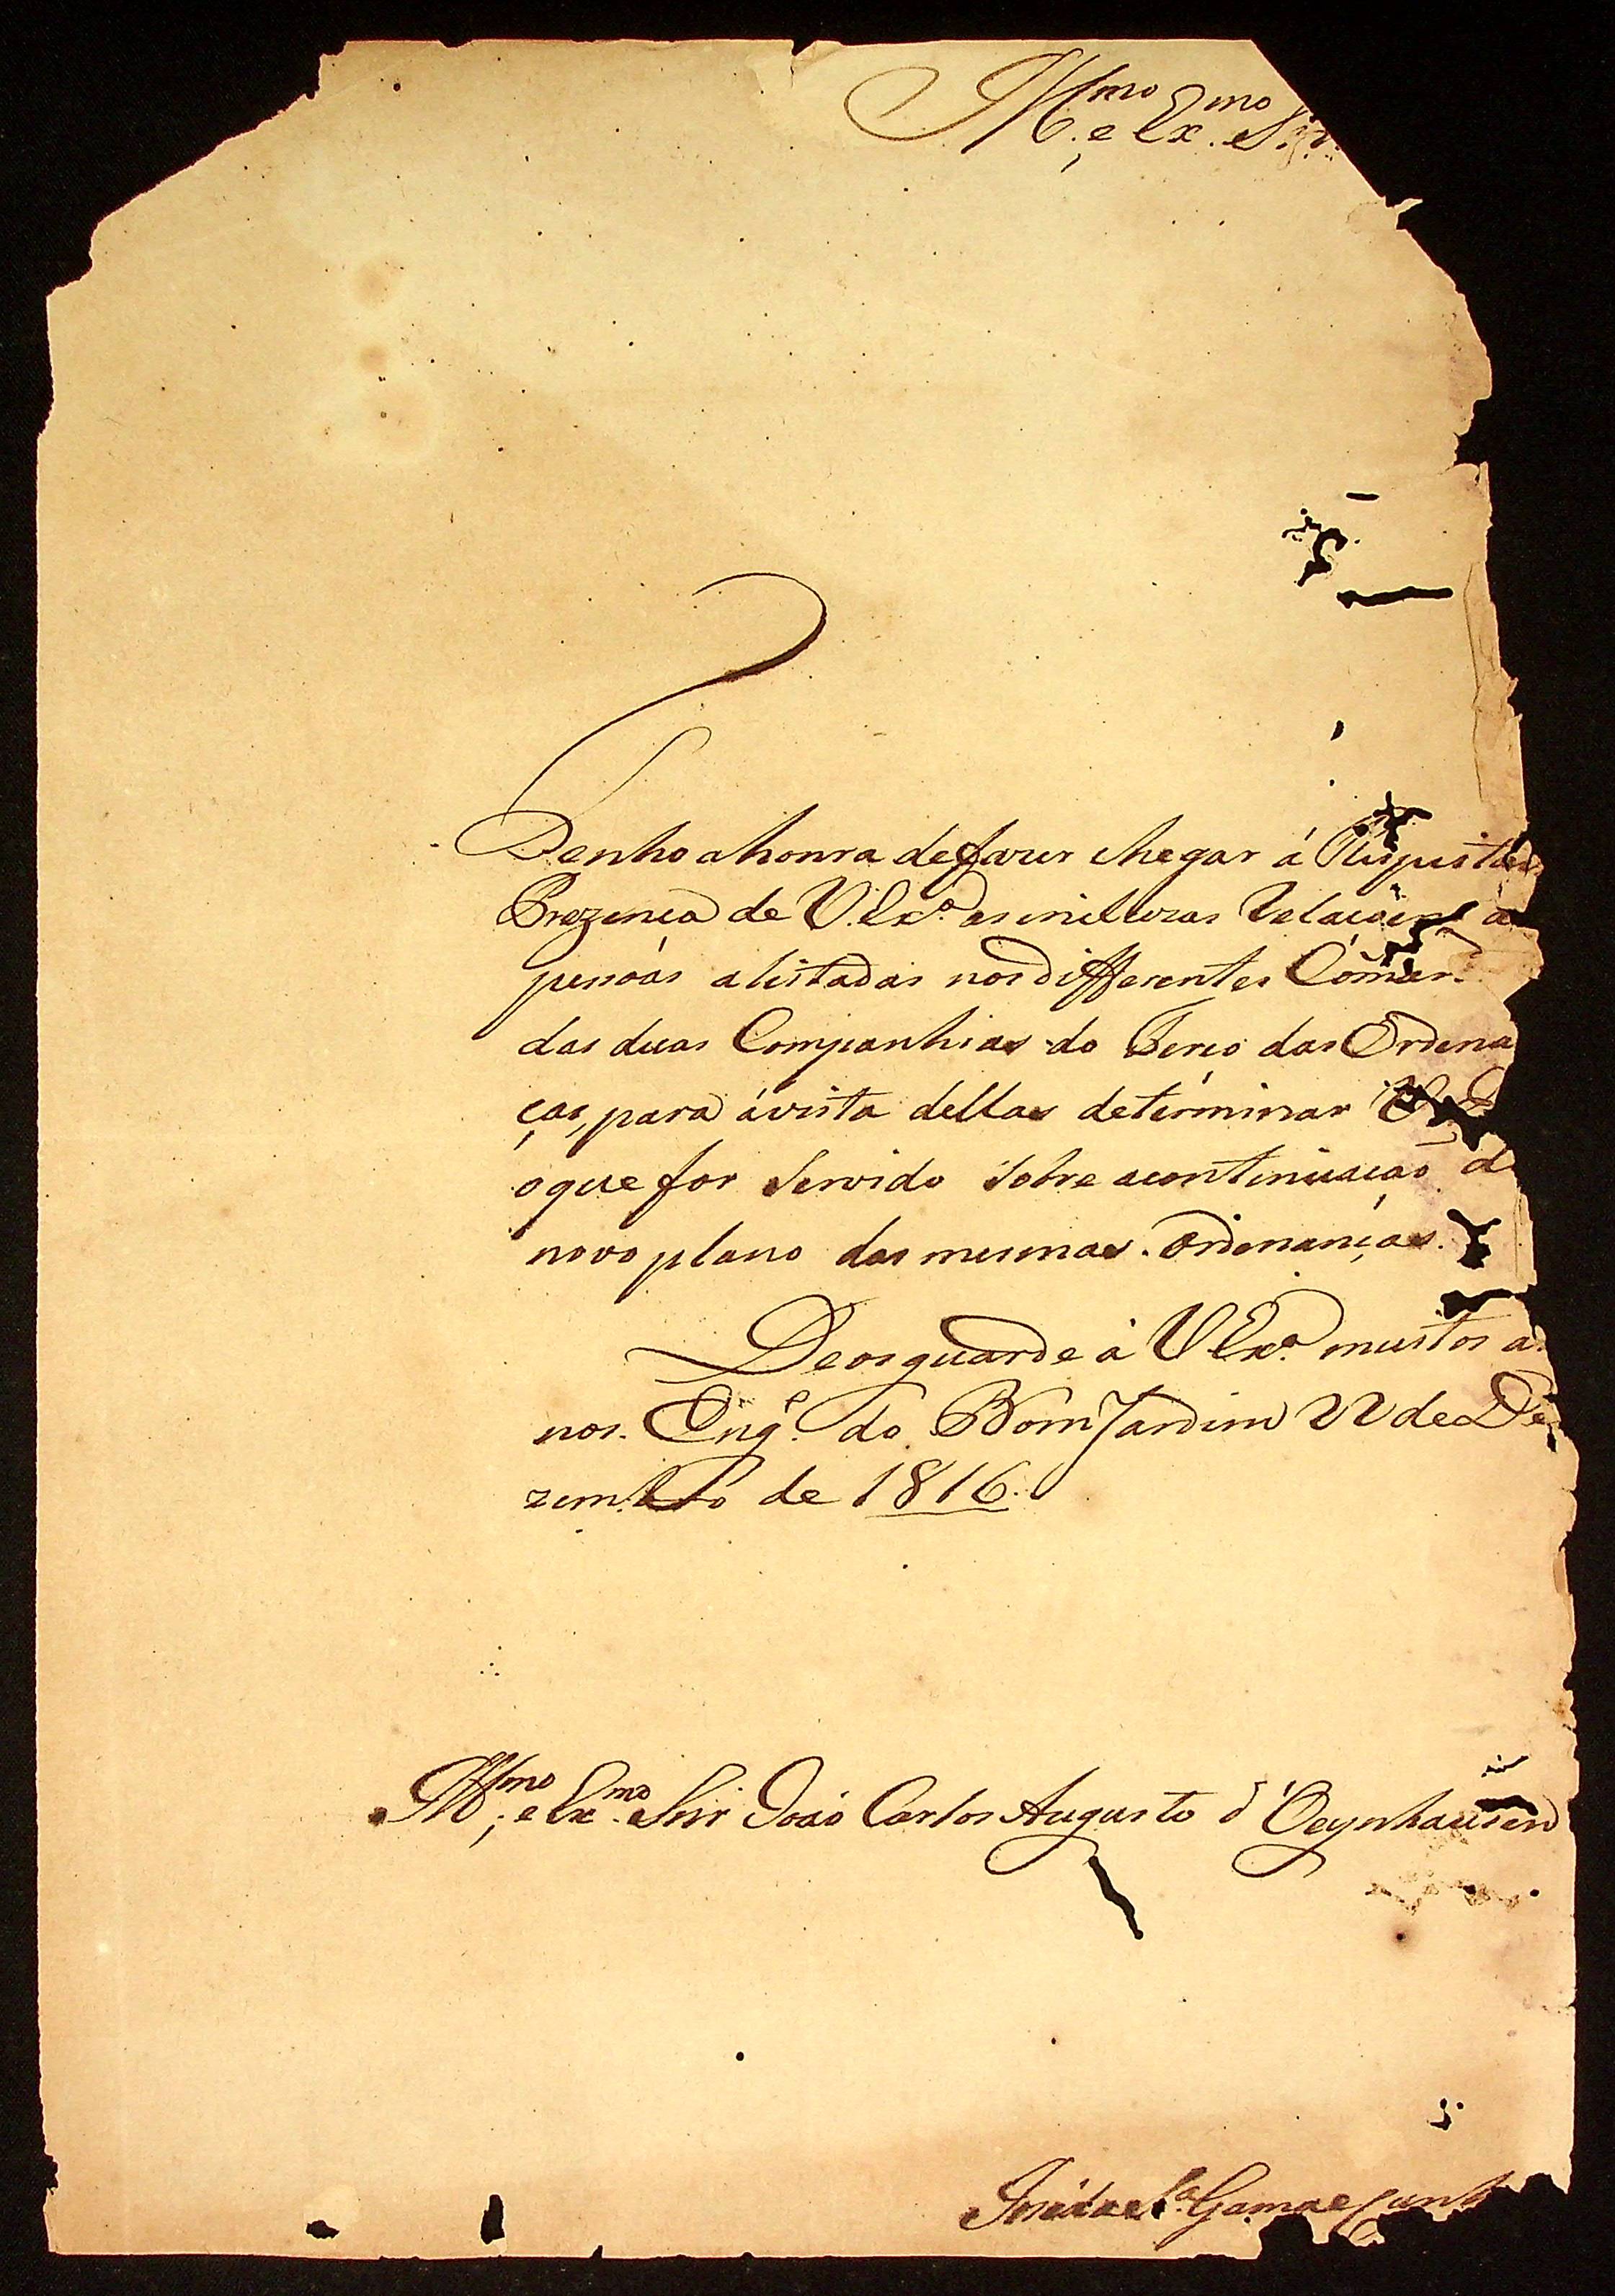 Ill.mo e Ex.mo Snr.
Tenho a honra de fazer chegar á Respeitavel
Prezença de V. Ex.a as incluzas Relaçoens
pessoas alistadas nos differentes
das duas Companhias do Terço das Ordena
ças, para á vista dellas determinar
o que for Servido Sobre a continuação d
novo plano das mesmas Ordenanças.
Deos guarde á V. Ex.a muitos an
nos. Eng.o do Bom Jardim 22 de De
zembro de 1816.
Ill.mo e Ex.mo Snr João Carlos Augusto d'Oeynhausen
José da S.a Gama e Cunh